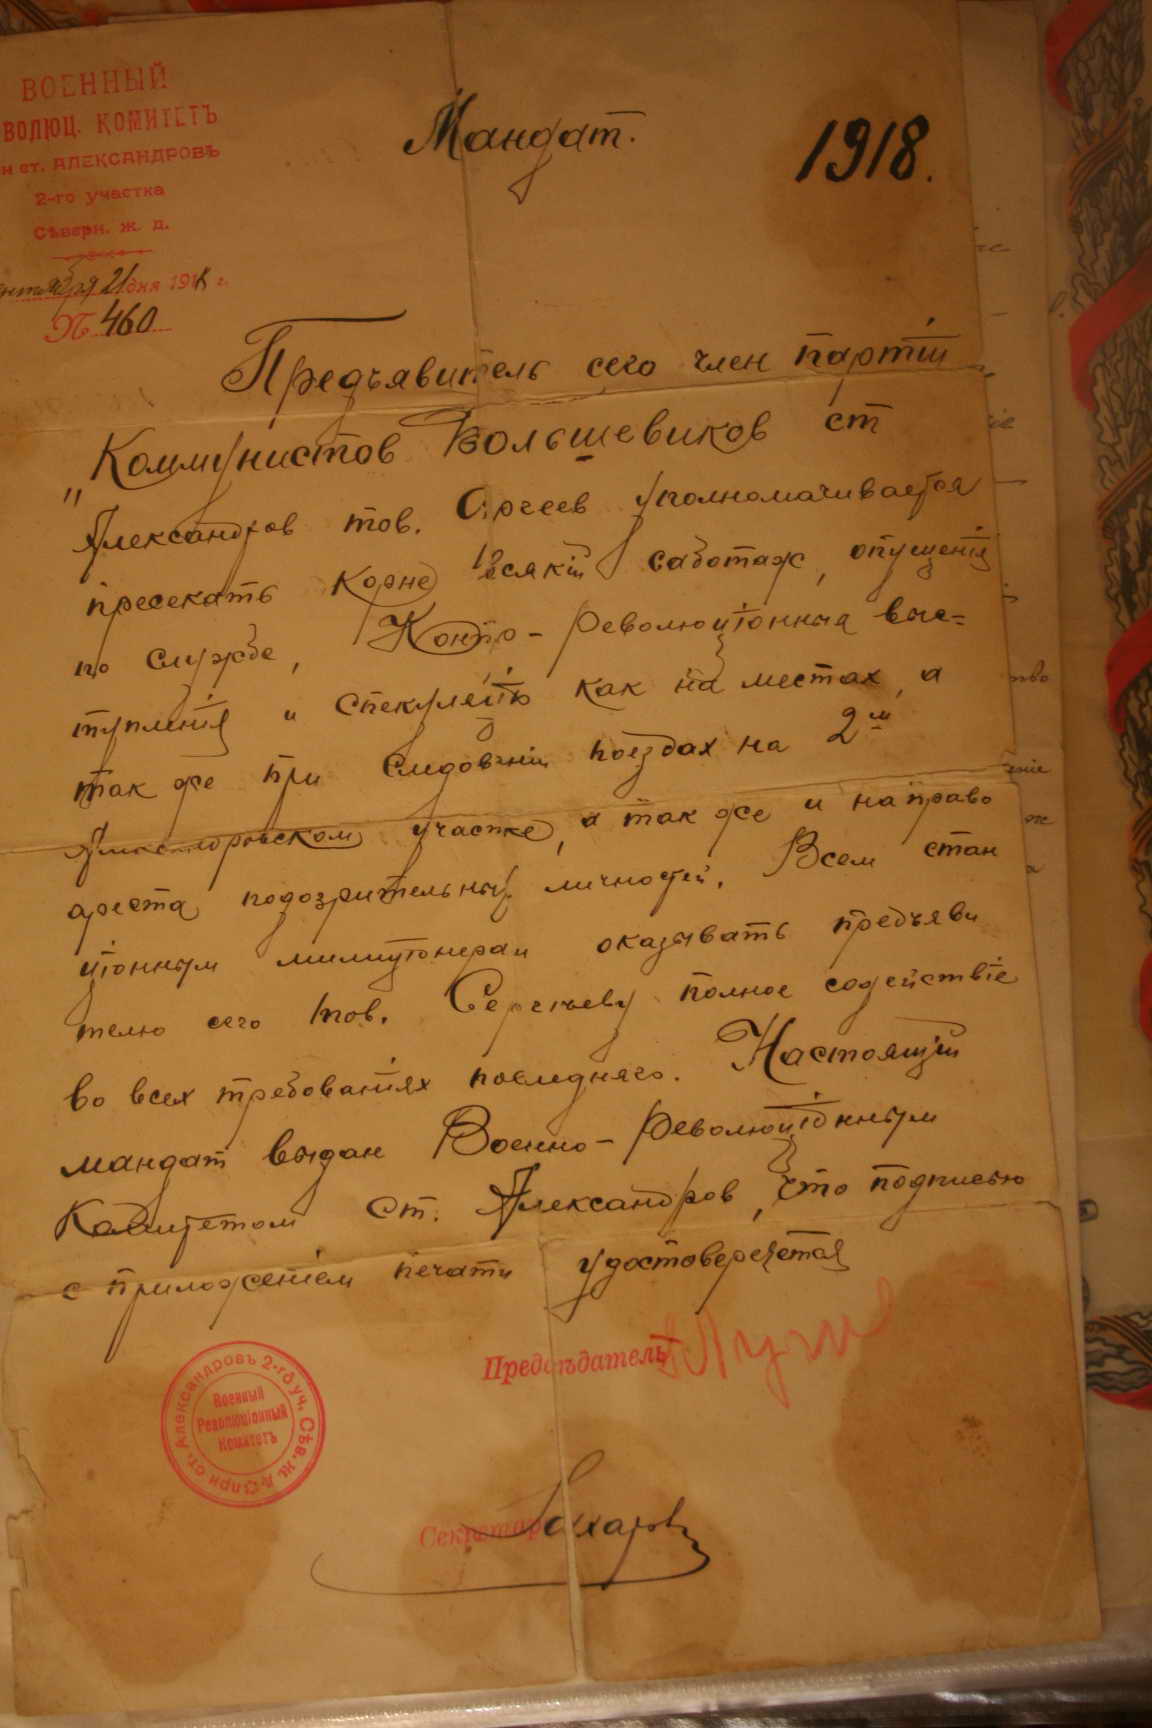 ВОЕННЫЙ
ВОЛЮЦ. КОМИТЕТЪ
и ст. АЛЕКСАНДРОВЪ
2-го участка
Сѣверн. ж. д.
ентября 21 дня 1918 г.
№ 460
Мандат.
1918.
Предъявитель сего член партіи
"Коммунистов Большевиков ст
Александров тов. Сргеев уполномачивается
пресекать корне всякій саботаж, опущенія
по службе, Контр-Революціонныя выс=
тупленія и спекуляцію как на местах, а
так же при следованіи поездах на 2м
Александровском участке, а так же и на право
ареста подозрительных личностей. Всем стан
ціонным милиціонерам оказывать предъяви
телю сего тов. Сергѣеву полное содействіе
во всех требованіях последняго. Настоящій
мандат выдан Военно-Революціонным
Комитетом ст. Александров, что подписью
с приложеніем печати удостоверяется
Предсѣдатель
Секретарь Захаров
при ст. Александровъ 2-го уч. Сѣв. ж. д.
Военный
Революціонный
Комитетъ